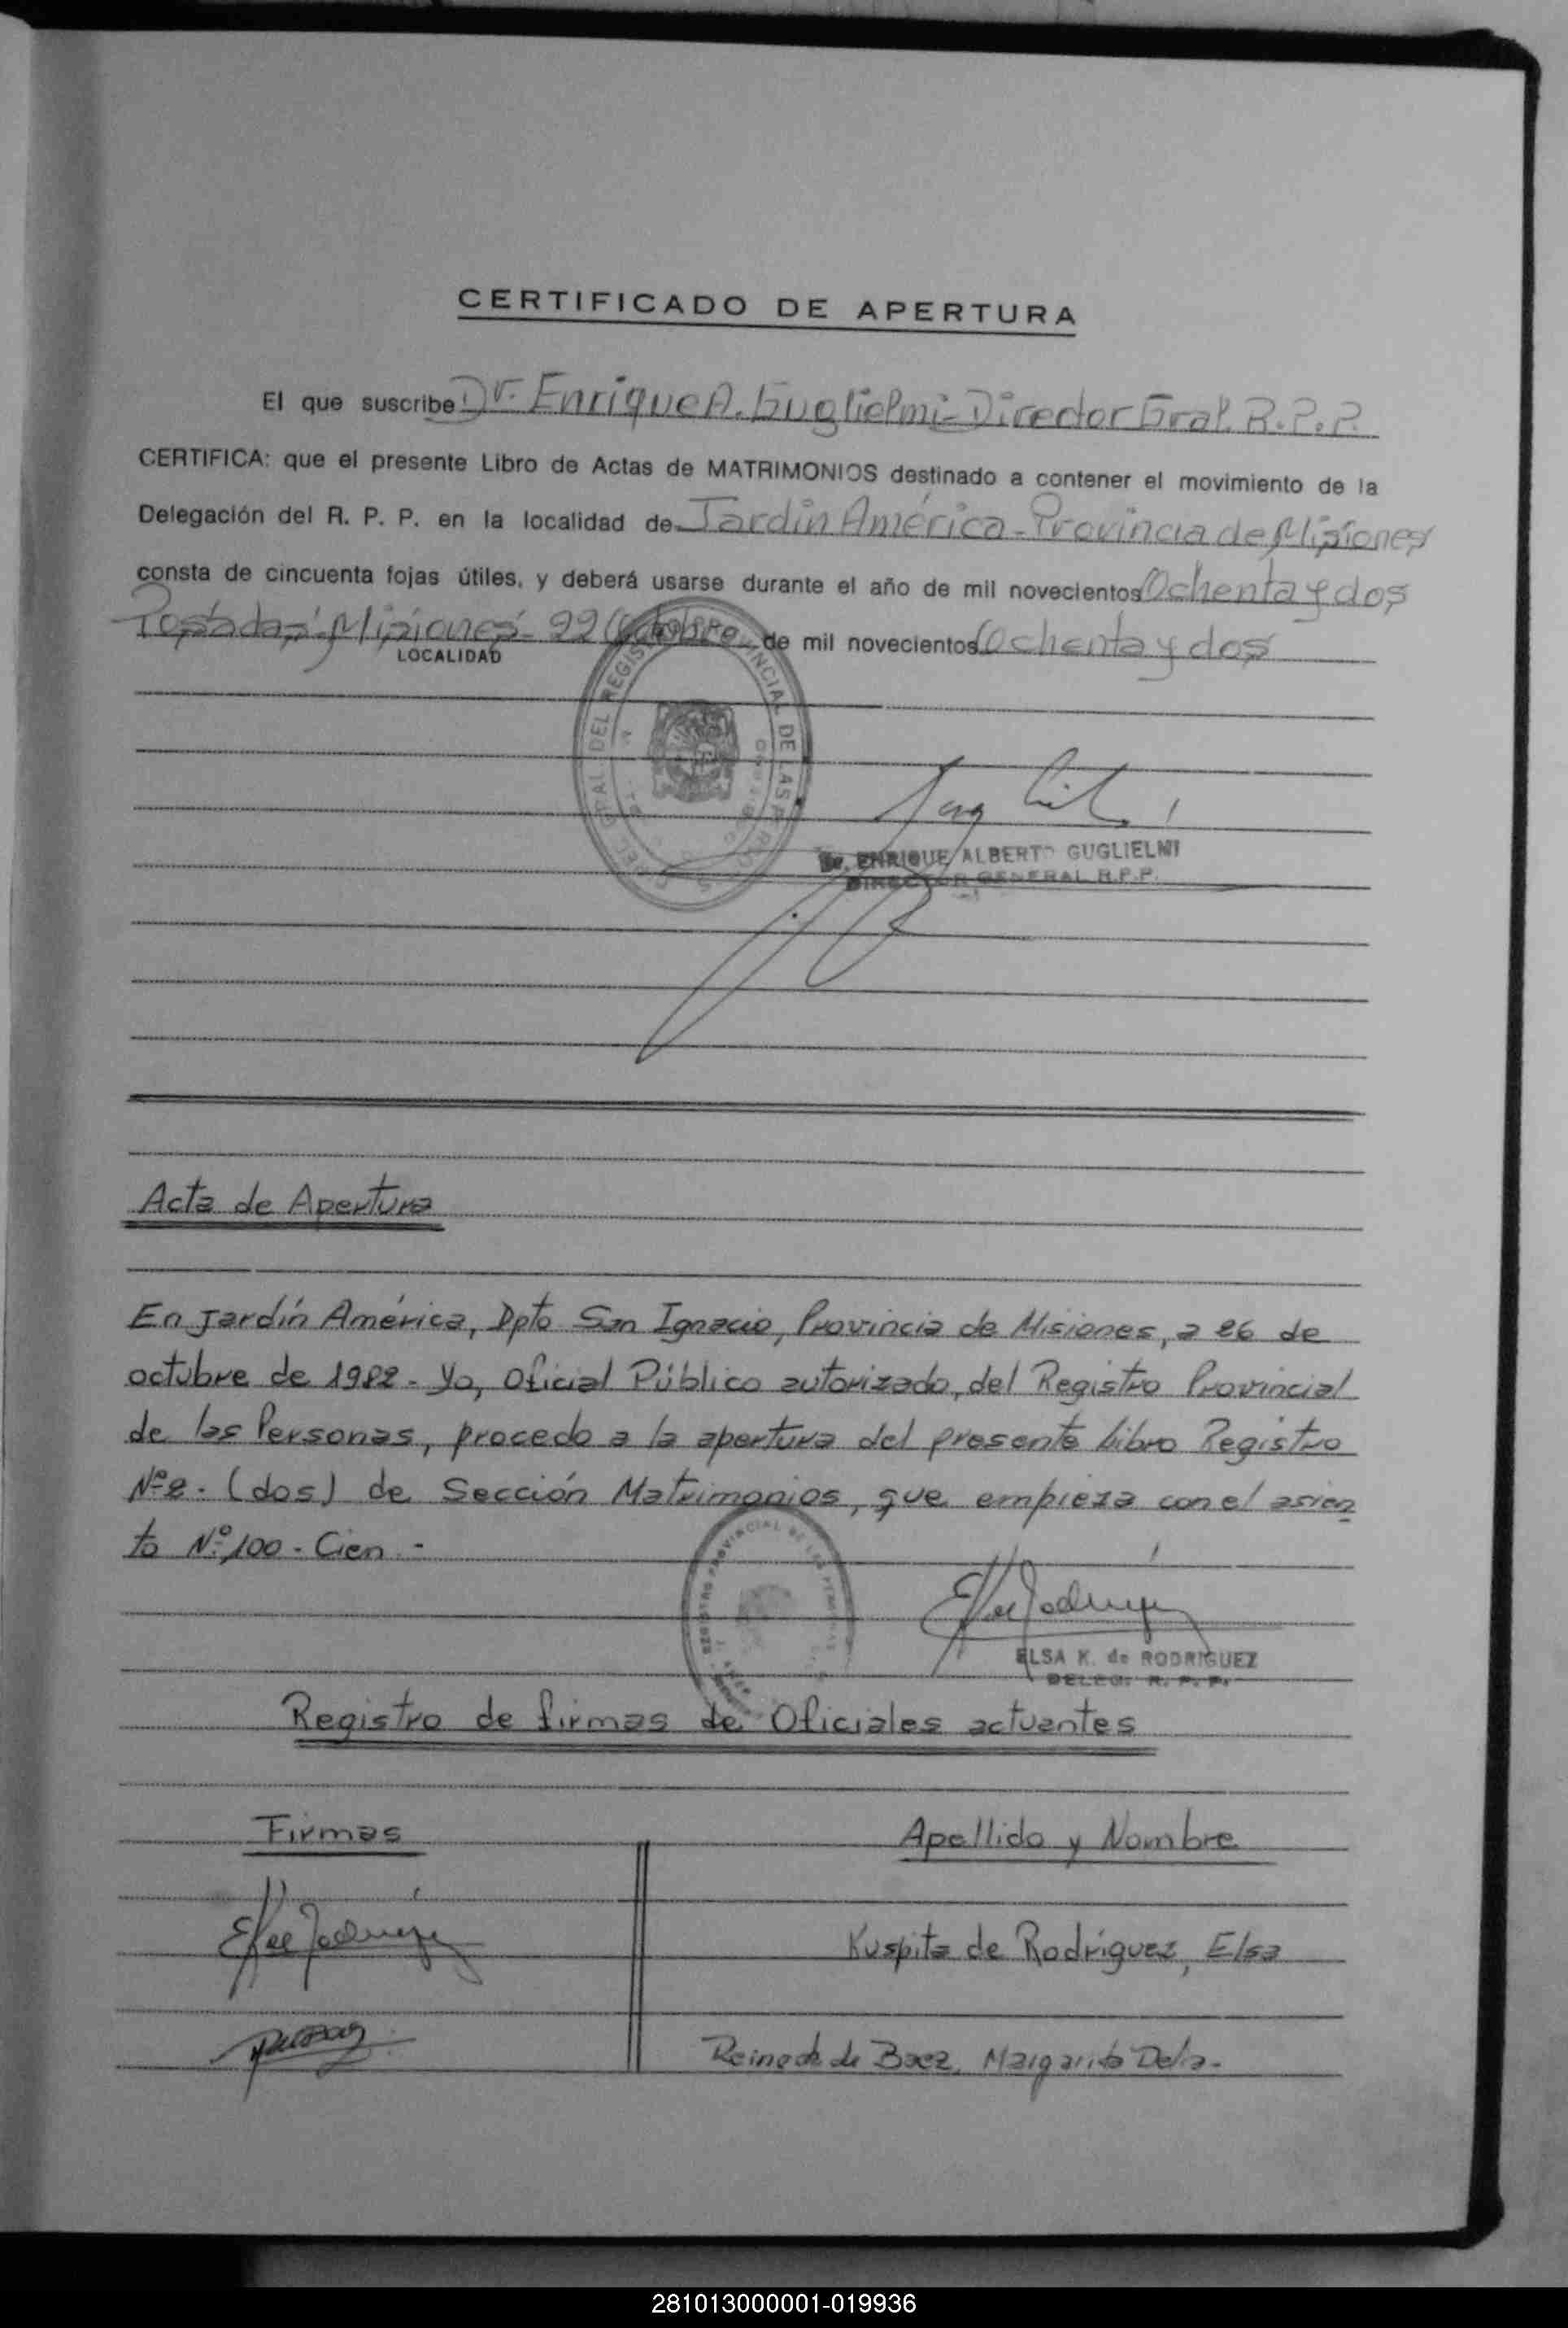 CERTIFICADO DE APERTURA
El que suscribe Dr. Enrique A. Guglielmi - Director Gral. R.P.P.
CERTIFICA: que el presente Libro de Actas de MATRIMONIOS destinado a contener el movimiento de la
Delegación del R. P. P. en la localidad de Jardín América - Provincia de Misiones
consta de cincuenta fojas útiles, y deberá usarse durante el año de mil novecientos Ochenta y dos
Posadas, Misiones 22 Octubre de mil novecientos Ochenta y dos
LOCALIDAD
REGISTRO PROVINCIAL DE LAS PERSONAS
Dr. ENRIQUE ALBERTO GUGLIELMI
DIRECTOR GENERAL R.P.P.
Acta de Apertura
En Jardín América, Dpto San Ignacio, Provincia de Misiones, a 26 de
octubre de 1982 - Yo, Oficial Público autorizado, del Registro Provincial
de las Personas, procedo a la apertura del presente Libro Registro
Nº 2 - (dos) de Sección Matrimonios, que empieza con el asien
to Nº 100 - Cien -
REGISTRO PROVINCIAL DE LAS PERSONAS
ELSA K. de RODRIGUEZ
DELEG. R. P. P.
Registro de firmas de Oficiales actuantes
Firmas Apellido y Nombre
Kuspita de Rodríguez, Elsa
de Baez, Margarita Delia -
281013000001-019936